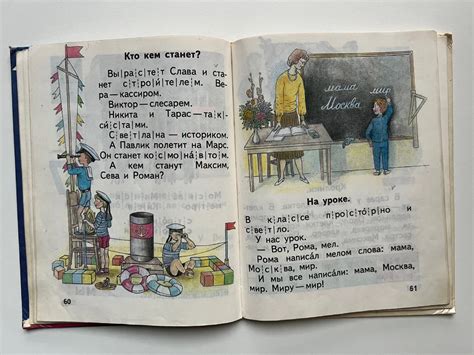 Кто кем станет?
Вы|рас|тет Слава и ста-
нет с|т|ро|и́|те|ле|м. Ве-
ра — кассиром.
Виктор — слесарем.
Никита и Тарас — так-
си́ста|ми.
С|ве|т|ла|на — историком.
А Павлик полетит на Марс.
Он станет ко|с|мо|на́в|том.
А кем станут Максим,
Сева и Роман?
60
мама мир
Москва
На уроке.
В к|ла|с|се п|ро|с|то́р|но и
с|ве́т|ло.
У нас урок.
— Вот, Рома, мел.
Рома написа́л мелом слова: мама,
Мо|с|к|ва, мир.
И мы все написа́ли: мама, Москва,
мир. Миру — мир!
61